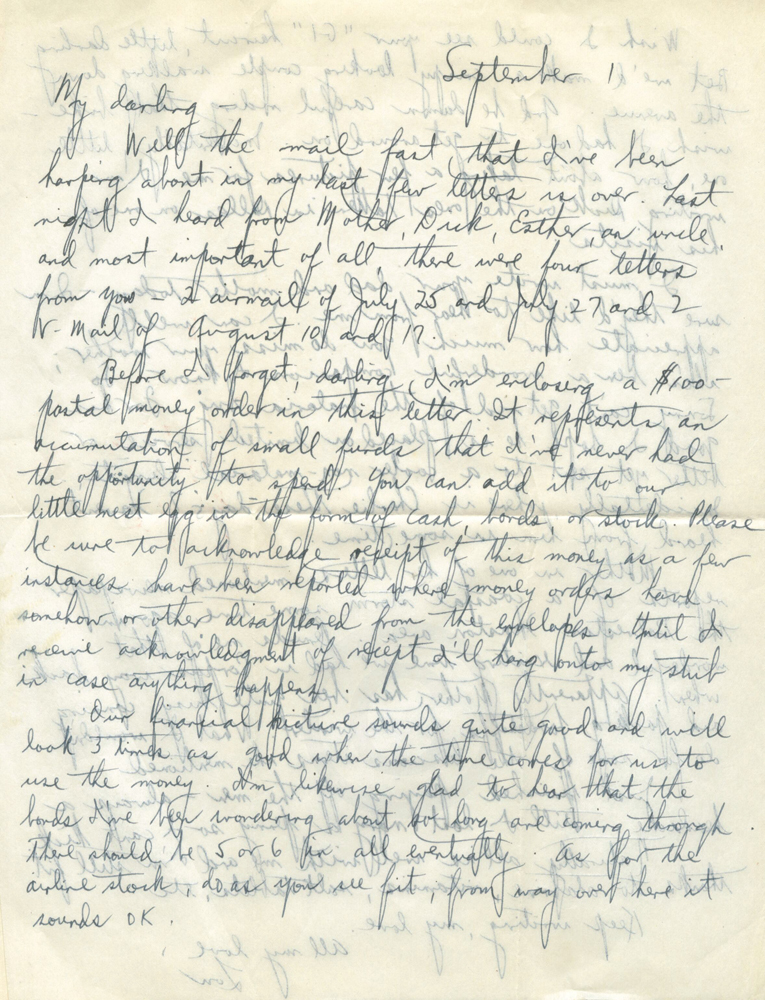 September 1
My darling -
Well the mail fast, that I've been
harping about in my last few letters is over. Last
night I heard from Mother, Dick, Esther, an uncle,
and most important of all there were four letters
from you - 2 airmail of July 25 and July 27 and 2
V-Mail of August 10 and 17.
Before I forget, darling, I'm enclosing a $100-
postal money order in this letter. It represents an
accumulation of small funds that I've never had
the opportunity to spend. You can add it to our
little nest egg in the form of cash, bonds, or stock. Please
be sure to acknowledge receipt of this money as a few
instances have been reported where money orders have
somehow or other disappeared from the envelopes. Until I
receive acknowledgment of receipt I'll hang onto my stub
in case anything happens.
Our financial picture sounds quite good and will
look 3 times as good when the time comes for us to
use the money. I'm likewise glad to hear that the
bonds I've been wondering about so long are coming through.
There should be 5 or 6 in all eventually. As for the
airline stock, do as you see fit, from way over here it
sounds OK.